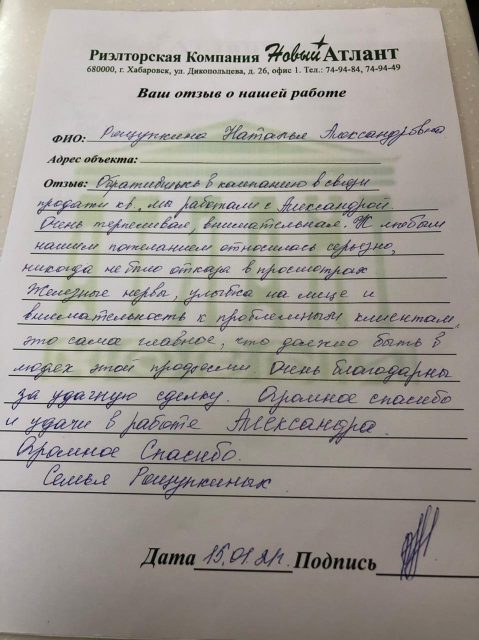 Риэлторская Компания Новый Атлант
680000, г. Хабаровск, ул. Дикопольцева, д. 26, офис 1. Тел.: 74-94-84, 74-94-49
Ваш отзыв о нашей работе
ФИО: Рощупкина Наталья Александровна
Адрес объекта:
Отзыв: Обратившись в компанию в связи
продажи кв, мы работали с Александрой.
Очень терпеливая, внимательная. К любым
нашим пожеланиям относилась серьезно,
никогда не было отказа в просмотрах
Железные нервы, улыбка на лице и
внимательность к проблемным клиентам,
это сама главное, что должно быть в
людях этой профессии. Очень благодарны
за удачную сделку. Огромное спасибо
и удачи в работе Александра.
Огромное Спасибо.
Семья Рощупкиных
Дата 15.01.21г. Подпись